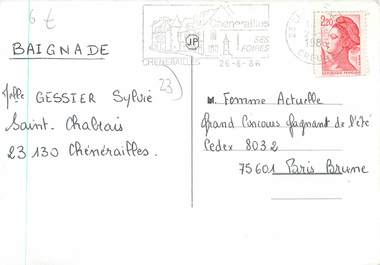 6 €
Chénerailles
JP
SES
FOIRES
CHENERAILLES
26-8-86
2,20
BAIGNADE
23
Melle GESSIER Sylvie
Saint-Chabrais
23 130 Chénérailles.
Femme Actuelle
Grand Concours Gagnant de l'été
Cedex 8032
75601 Paris Brune